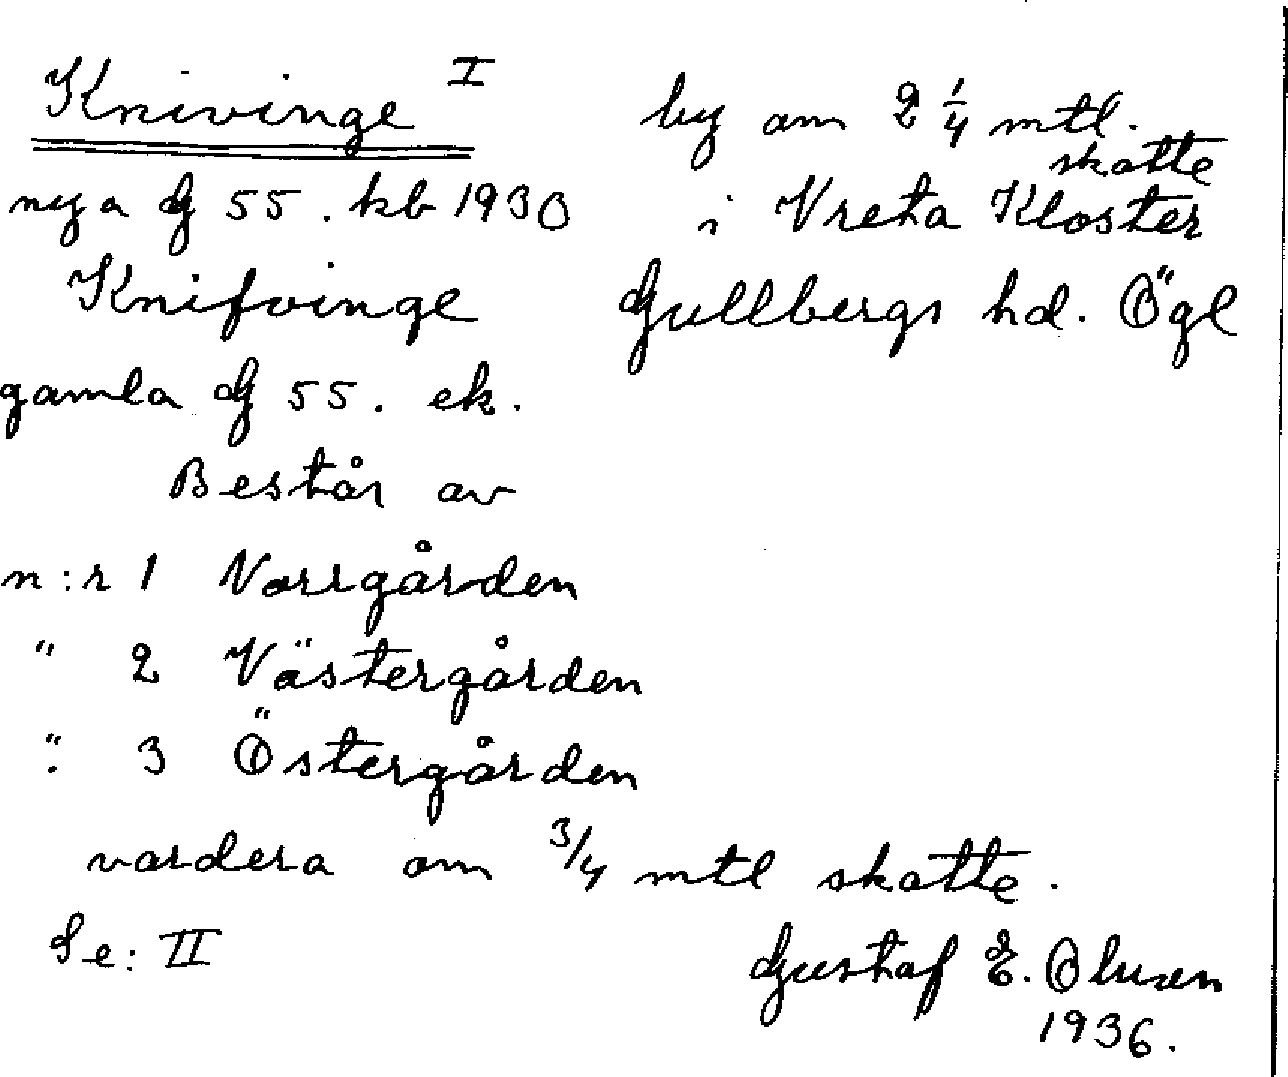 Knivinge I
by om 2 1/4 mtl.
skatte
nya G 55. kb 1930
i Vreta Kloster
Knifvinge
Gullbergs hd. Ögl
gamla G 55. ek.
Består av
n:r 1 Norrgården
" 2 Västergården
" 3 Östergården
vardera om 3/4 mtl skatte.
Se: II
Gustaf E.
1936.